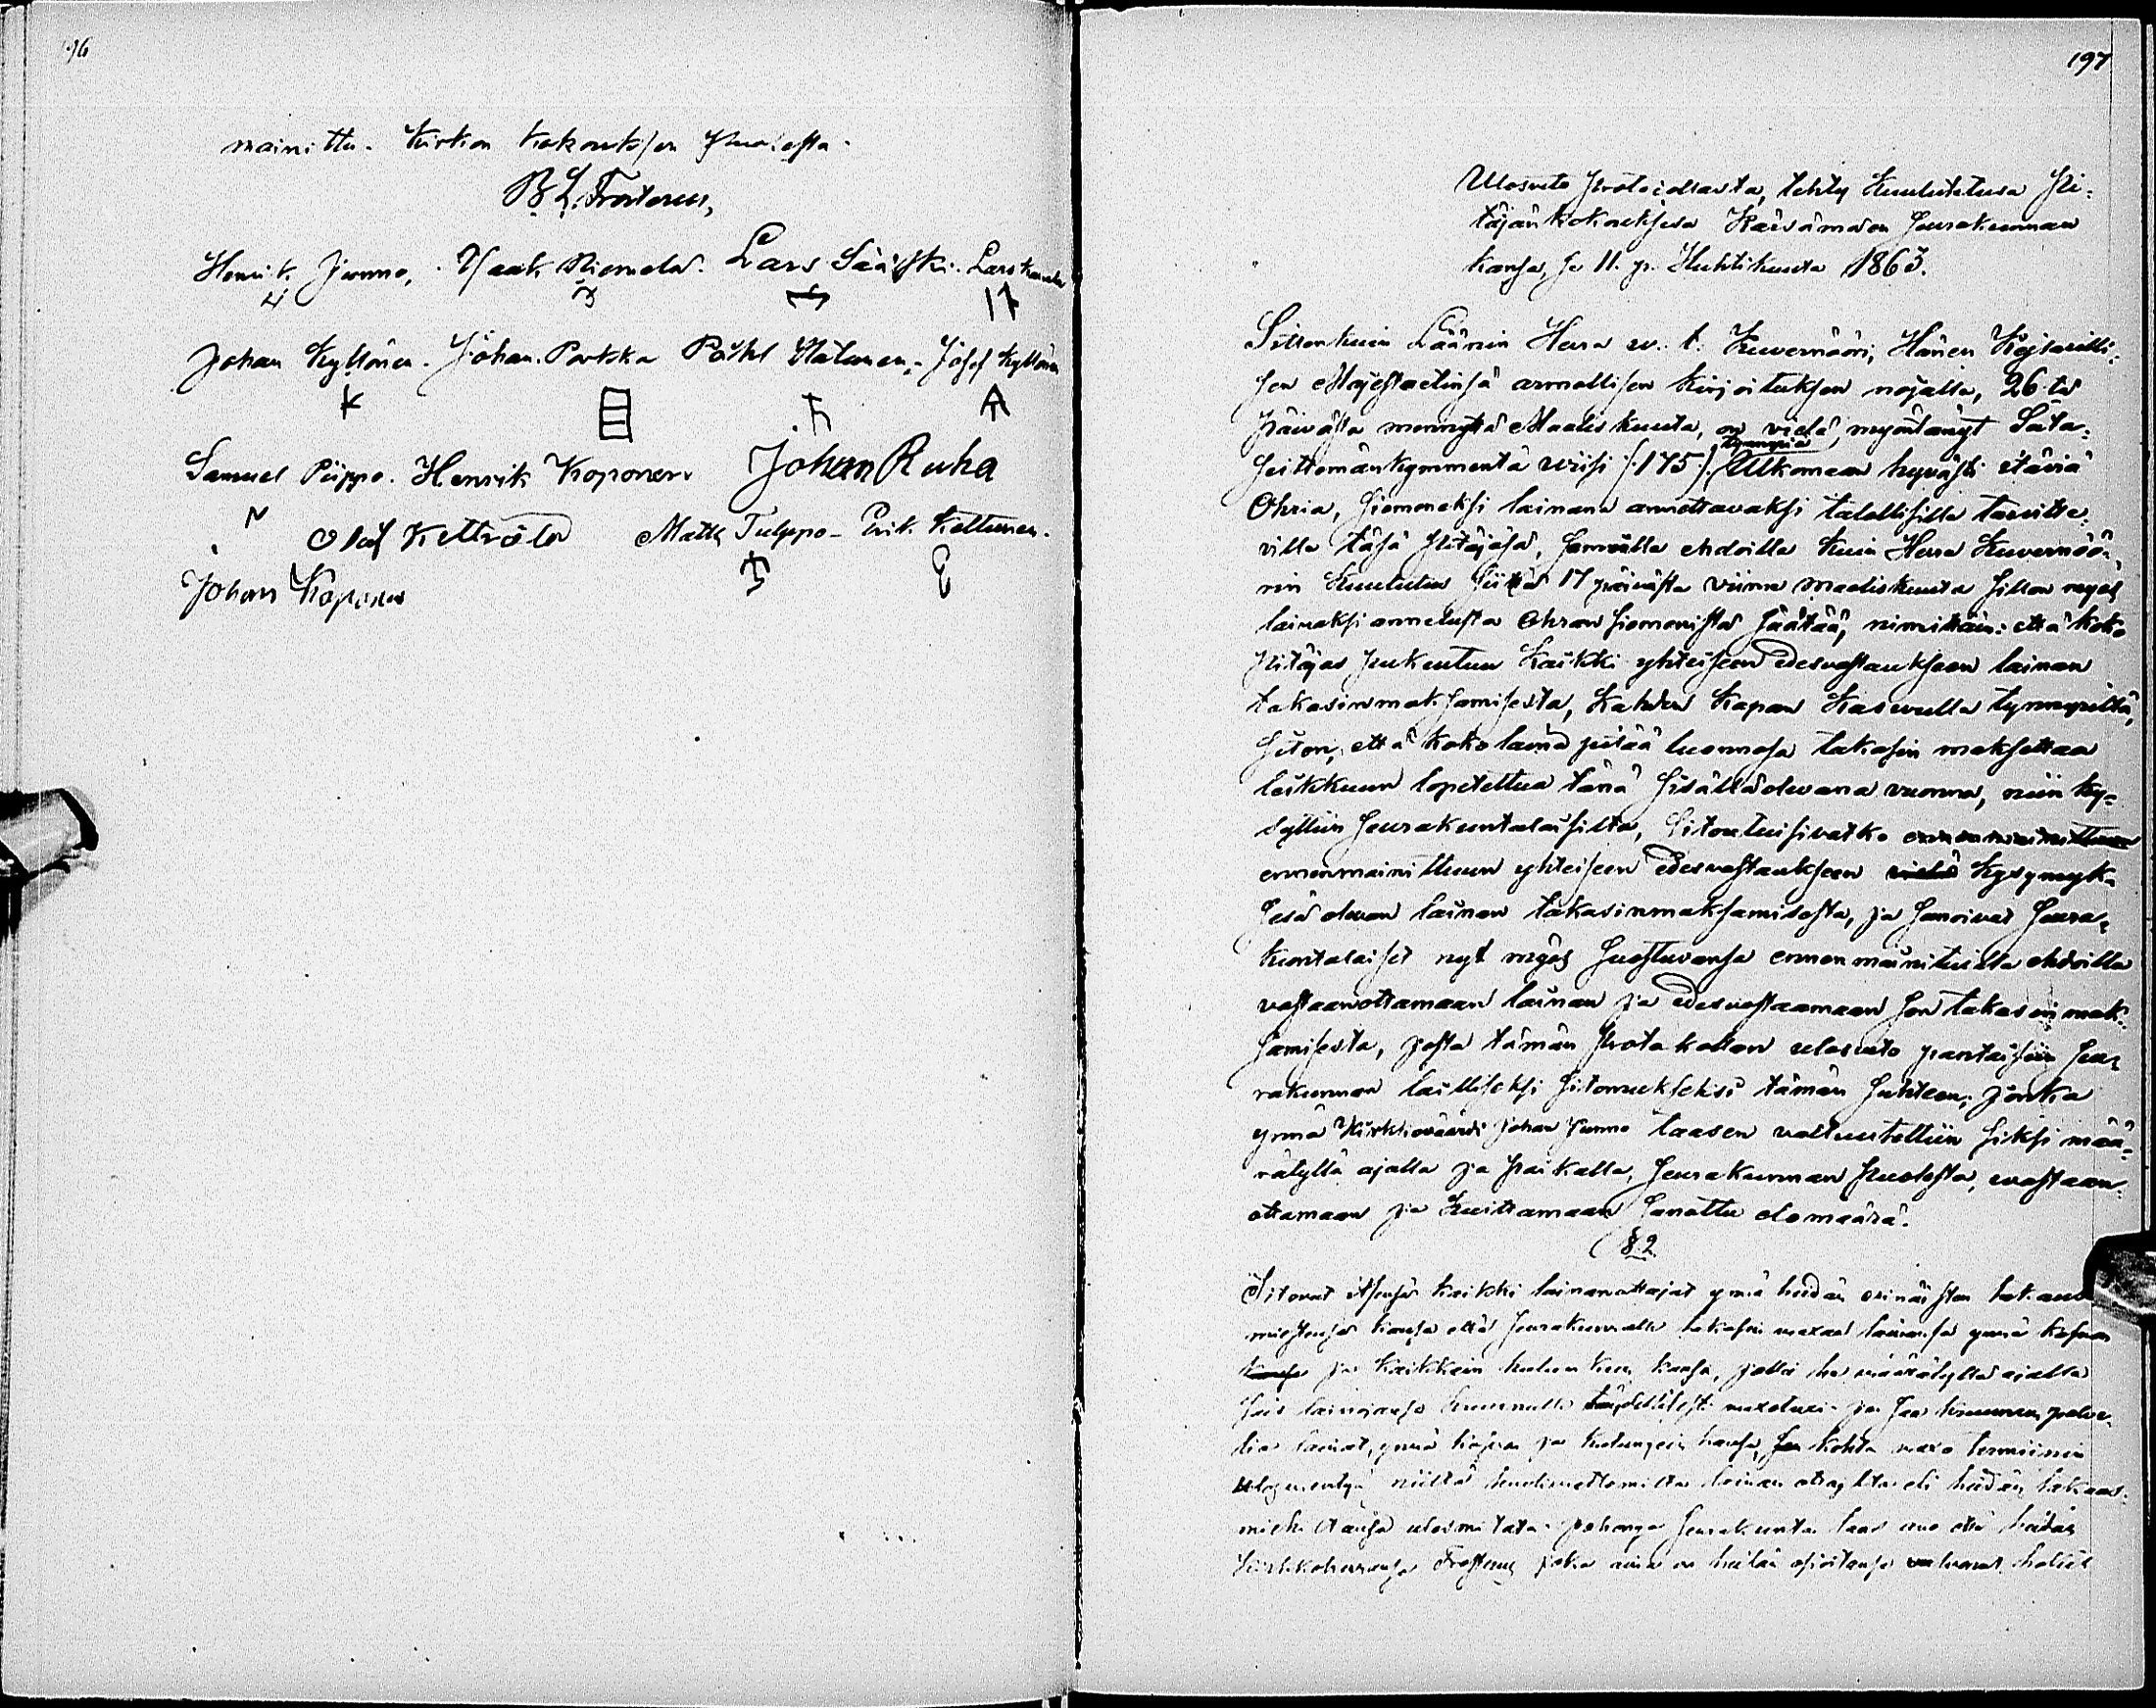 196
mainittu. Kirkon kokouksen puolesta.
B. L. Frosterus,
Henrik Junno, Isaak Niemelä. Lars Sääski. Lars
Johan Kyllönen. Johan Parkka Påhl Hälinen, Josef Kyllönen
Samuel Piippo. Henrik Koponen. Johan Ruha
Olof Kettälä Matts Tulppo Erik Keltunen.
Johan Koponen
197
Ulosveto Protocollasta, tehty Kuulutetusa Pi-
täjänkokouksesa Kärsämäen Seurakunnan
kansa, se 11. p. Huhtikuuta 1863.
Sittenkuin Läänin Herra w. t. Kuvernööri, Hänen Kejsarilli-
sen Majestetinsä armollisen kirjoituksen nojalla, 26:ta
päivästä mennyttä Maaliskuuta, on vielä myöntänyt Sata-
seittemänkymmentä wiisi /:175:/ tynnyriä Ulkomaan hyvästi itäviä
Ohria, siemeneksi lainana annettavaksi talollisille tarvitse-
ville täsä Pitäjäsä, samalla ehdoilla kuin Herra Kuvernöö-
rin Kuulutus siitä 17 päivästä viime maaliskuuta sillon myös
lainaksi annetusta Ohran siemenistä säätää, nimittäin: että koko
Pitäjäs pukeutuu kaikki yhteiseen edesvastaukseen lainan
takasinmaksamisesta, kahden kapan kasvulla tynnyriltä,
siton, että koko laina pitää luonnosa takasin maksettaa
leikkuun lopetettua tänä sisälläolevana vuonna, niin ky-
syttiin seurakuntalaisilta, sitoutuisivatko ennenmainittuun
ennenmainittuun yhteiseen edesvastaukseen vielä kysymyk-
sesä olevan lainan takasinmaksamisesta, ja sanoivat seura-
kuntalaiset nyt myös suostuvansa ennenmainituilla ehdoilla
vastaanottamaan lainan ja edesvastaamaan sen takasinmak-
samisesta, josta tämän Protokollan ulosveto pantaisiin seu-
rakunnan lailliseksi sitomukseksi tämän suhteen; jonka
ynnä Kirkkoväärdi Johan Junno taasen valtuutettiin siksi mää-
rätyllä ajalla ja paikalla, seurakunnan puolesta, vastaan-
ottamaan ja kuittamaan sanottu elomäärä.
§ 2
Sitovat itsensä kaikki lainanottajat ynnä heidän erinäisten takaus
miestensä kansa että seurakunnalle takasin maxaa lainansa ynnä kasvun
kansa ja kaikkein kulunkein kansa, jollei he määrätyllä ajalla
lainojansa kruunulle täydellisesti maxetuxi ja saa kruunun palve-
lia lainat, ynnä kasvun ja kulungein kansa, sen kohta maxo terminin
ulosmentyä niiltä huolimattomilta lainan ottajilta eli heidän takaus-
miehiltänsä ulosmitata. johonga seurakunta taas anoi että heidän
Kirkkoherransa Frosterus joka aina on heidän asioitansa valvonut